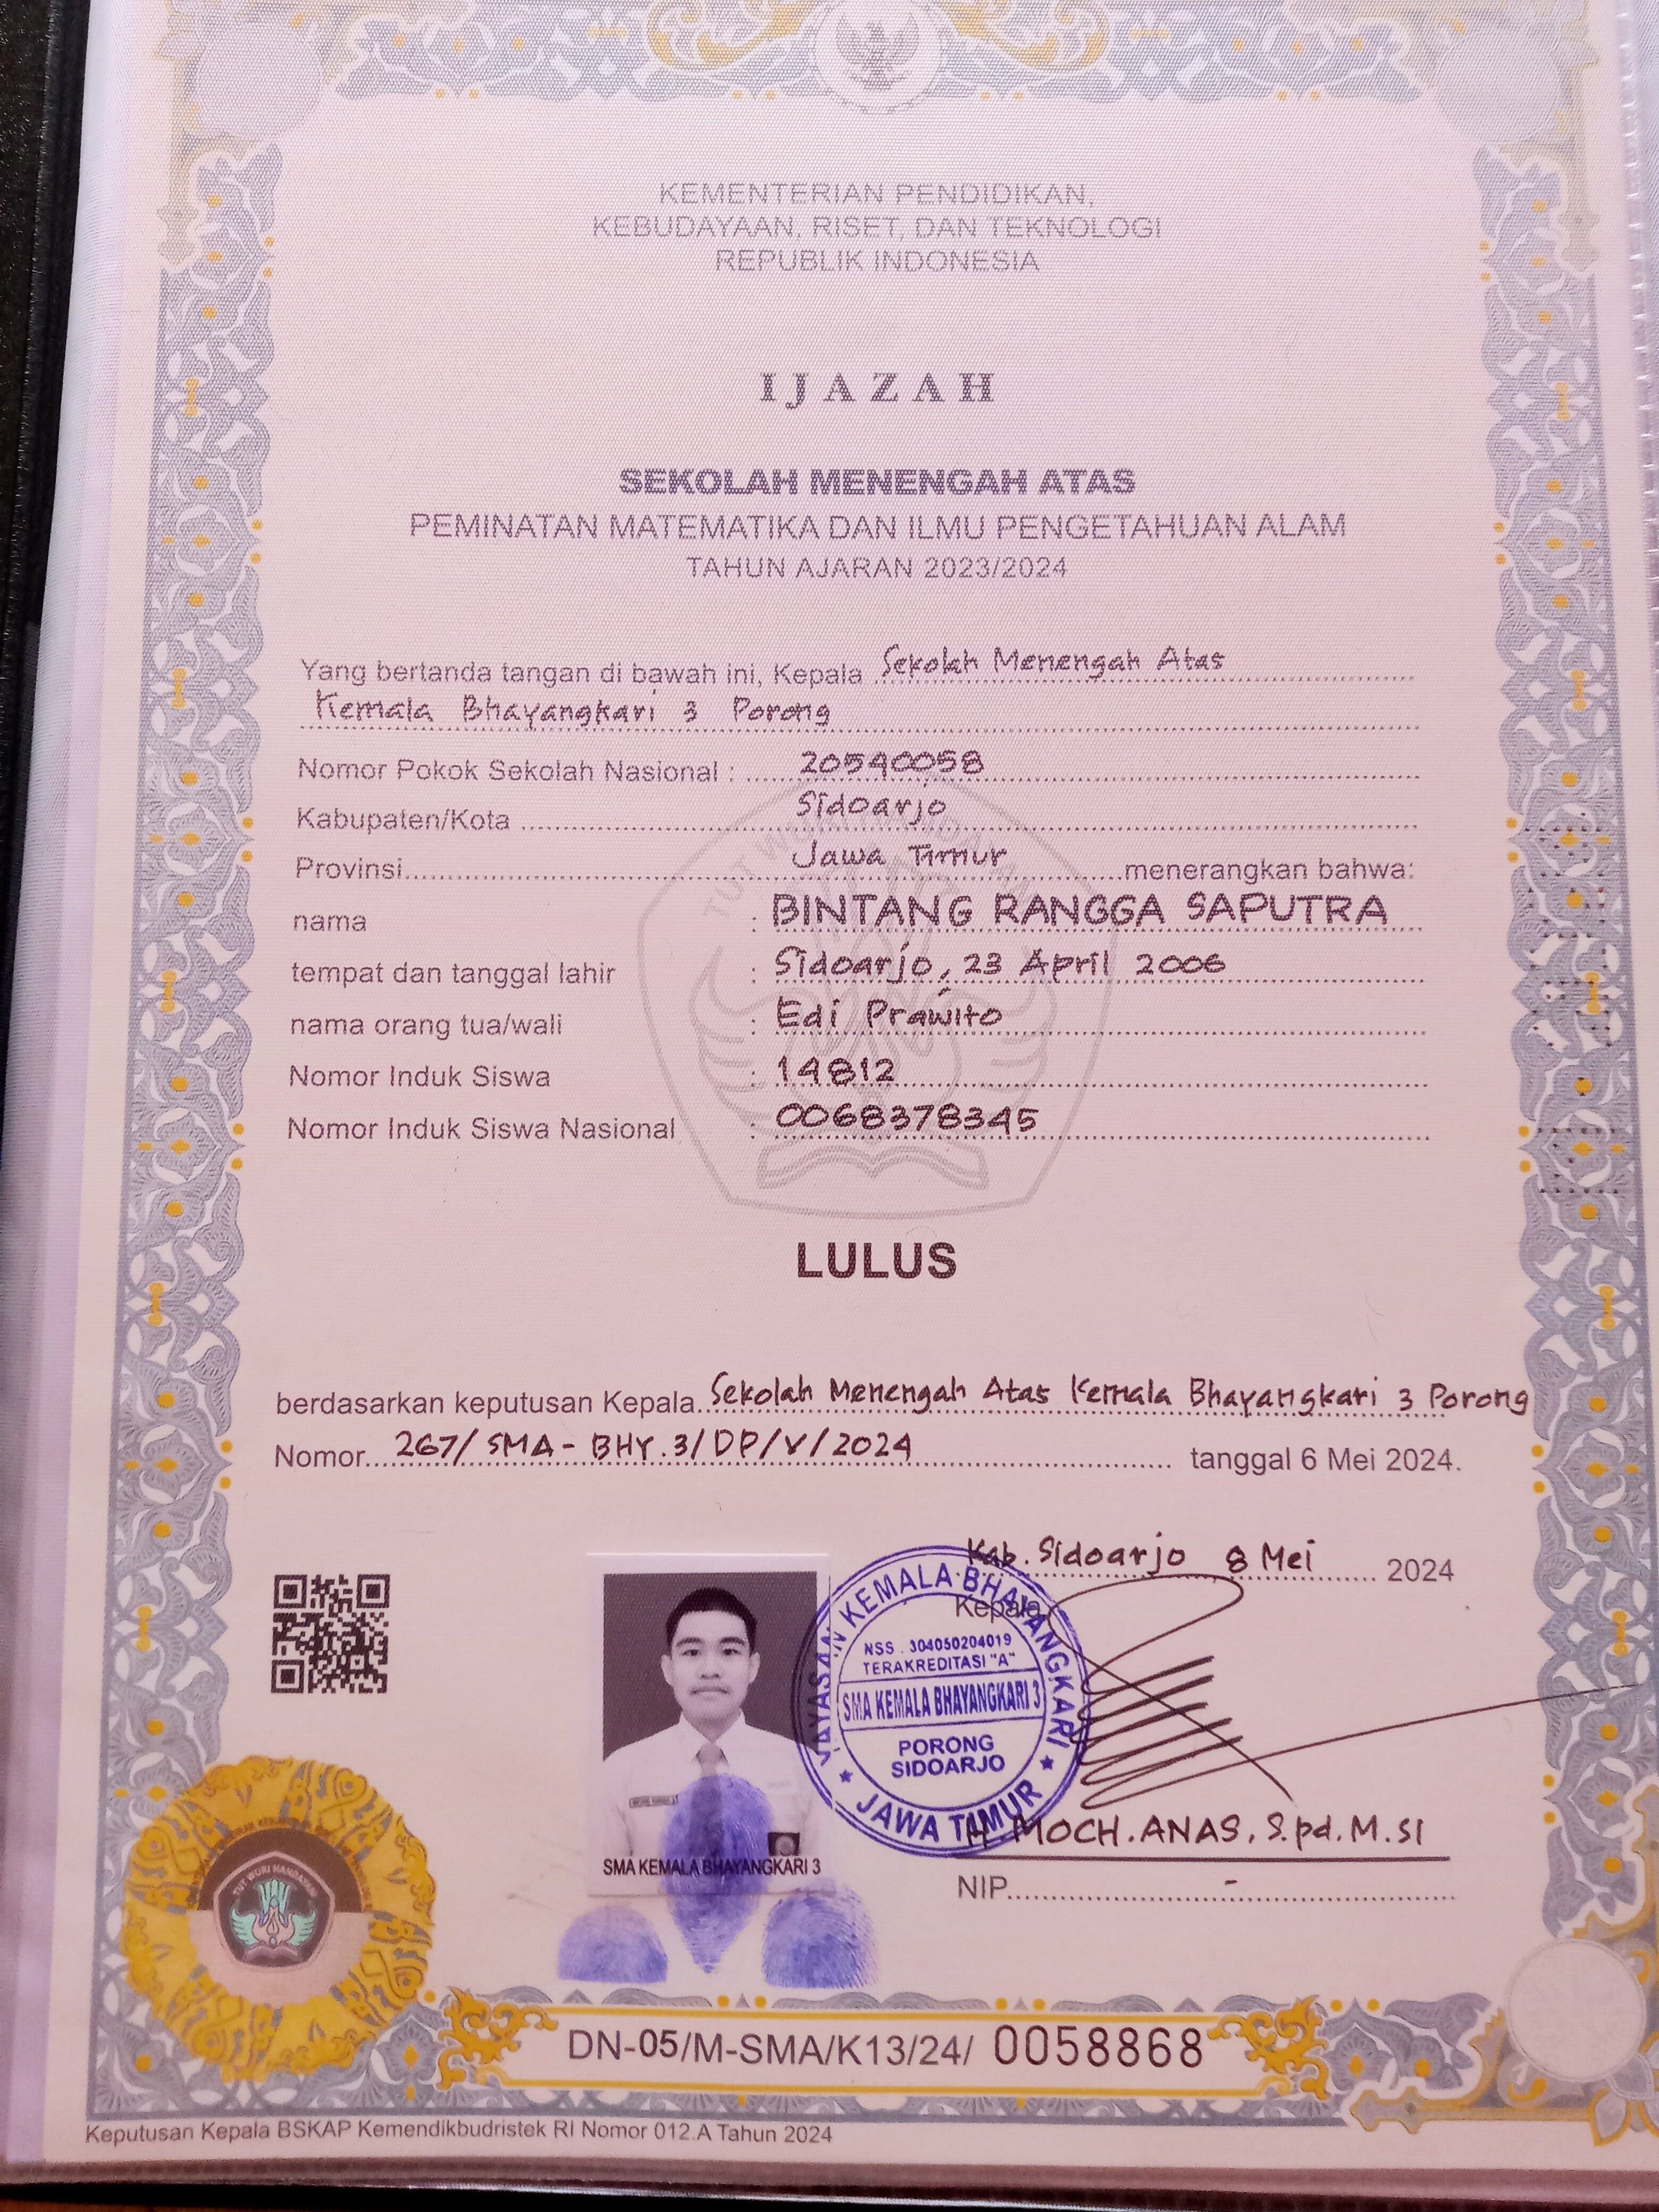 KEMENTERIAN PENDIDIKAN,
KEBUDAYAAN, RISET, DAN TEKNOLOGI
REPUBLIK INDONESIA
IJAZAH
SEKOLAH MENENGAH ATAS
PEMINATAN MATEMATIKA DAN ILMU PENGETAHUAN ALAM
TAHUN AJARAN 2023/2024
Yang bertanda tangan di bawah ini, Kepala Sekolah Menengah Atas
Kemala Bhayangkari 3 Porong
Nomor Pokok Sekolah Nasional : 20540058
Kabupaten/Kota Sidoarjo
Provinsi Jawa Timur menerangkan bahwa:
nama : BINTANG RANGGA SAPUTRA
tempat dan tanggal lahir : Sidoarjo, 23 April 2006
nama orang tua/wali : Edi Prawito
Nomor Induk Siswa : 14812
Nomor Induk Siswa Nasional : 0068378345
TUT WURI HANDAYANI
LULUS
berdasarkan keputusan Kepala Sekolah Menengah Atas Kemala Bhayangkari 3 Porong
Nomor 267/SMA-BHY.3/DP/V/2024 tanggal 6 Mei 2024.
Kab. Sidoarjo 8 Mei 2024
Kepala
YAYASAN KEMALA BHAYANGKARI
NSS . 304050204019
TERAKREDITASI "A"
SMA KEMALA BHAYANGKARI 3
PORONG
SIDOARJO
JAWA TIMUR
H. MOCH. ANAS, S.pd. M.si
NIP. -
SMA KEMALA BHAYANGKARI 3
TUT WURI HANDAYANI
DN-05/M-SMA/K13/24/ 0058868
Keputusan Kepala BSKAP Kemendikbudristek RI Nomor 012.A Tahun 2024